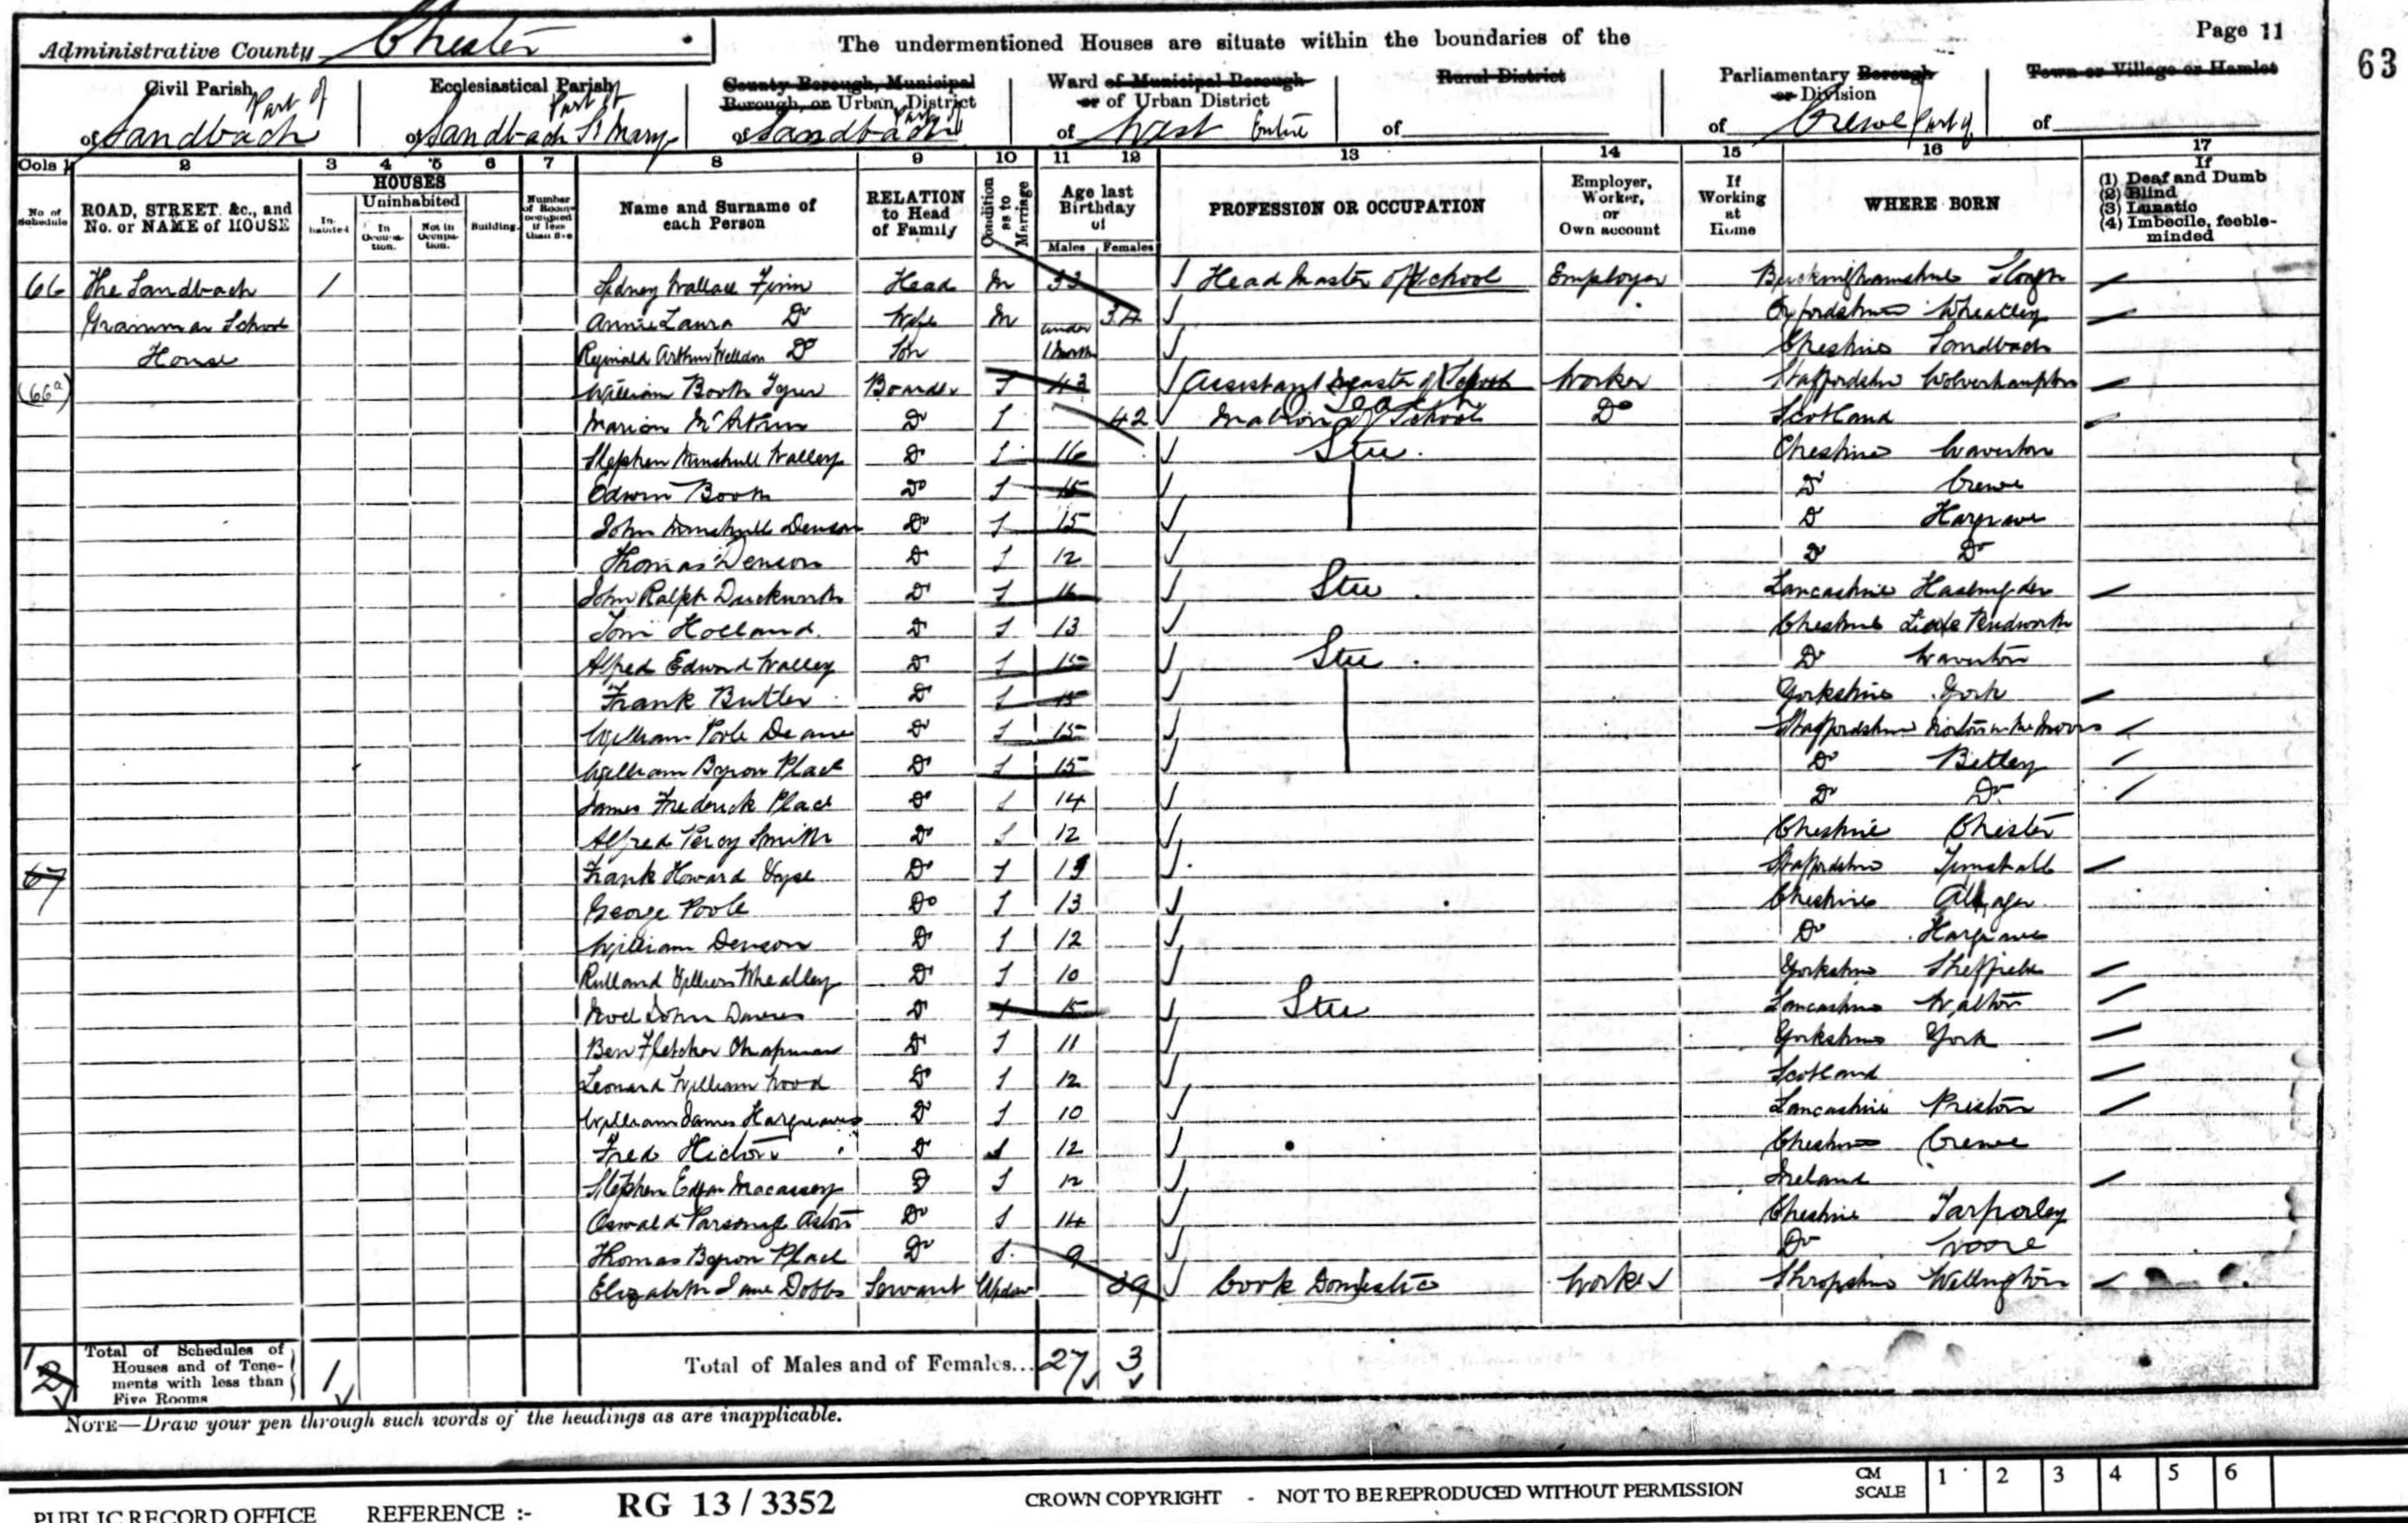 Administrative County Chester
The undermentioned Houses are situate within the boundaries of the
Page 11
63
Civil Parish
Part of
of Sandbach
Ecclesiastical Parish
Part of
of Sandbach St Mary
County Borough, Municipal
Borough, or Urban District
Part of
of Sandbach
Ward of Municipal Borough
or of Urban District
of West Entire
Rural District
of
Parliamentary Borough
or Division
of Crewe Part of
Town or Village or Hamlet
of
Cols 1 2 3 4 5 6 7 8 9 10 11 12 13 14 15 16 17
No of Schedule
ROAD, STREET, &c., and No. or NAME of HOUSE
HOUSES
In-habited
Uninhabited
In Occupa-tion.
Not in Occupa-tion.
Building.
Number of Rooms occupied if less than five
Name and Surname of each Person
RELATION to Head of Family
Condition as to Marriage
Age last Birthday of
Males Females
PROFESSION OR OCCUPATION
Employer, Worker, or Own account
If Working at Home
WHERE BORN
If
(1) Deaf and Dumb
(2) Blind
(3) Lunatic
(4) Imbecile, feeble-minded
66 The Sandbach 1 Sidney Wallace Finn Head M 33 Head Master of School Employer Buckinghamshire Slough
Grammar School Annie Laura Do Wife M 34 Oxfordshire Wheatley
House Reginald Arthur Welldon Do Son under 1 month Cheshire Sandbach
(66a) William Booth Boarder S 43 Assistant Master of School Worker Staffordshire Wolverhampton
Teach
Marion McArthur Do S 42 Matron of School Do Scotland
Stephen Minshull Walley Do S 16 Stu. Cheshire Waverton
Edwin Booth Do S 15 Do Crewe
John Minshull Denson Do S 15 Do Hargrave
Thomas Denson Do S 12 Do Do
John Ralph Duckworth Do S 16 Stu. Lancashire Haslingden
Tom Holland Do S 13 Cheshire Little Budworth
Alfred Edward Walley Do S 15 Stu. Do Waverton
Frank Butler Do S 15 Yorkshire York
William Poole Deane Do S 15 Staffordshire Norton in the Moors
William Byron Place Do S 15 Do Betley
James Frederick Place Do S 14 Do Do
Alfred Percy Smith Do S 12 Cheshire Chester
67 Frank Howard Do S Staffordshire Tunstall
George Poole Do S 13 Cheshire Alsager
William Denson Do S 12 Do Hargrave
Rutland Whealley Do S 10 Yorkshire Sheffield
Noel John Davies Do S 15 Stu Lancashire Walton
Ben Fletcher Chapman Do S 11 Yorkshire York
Leonard William Wood Do S 12 Scotland
William James Hargreaves Do S 10 Lancashire Preston
Fred Do S 12 Cheshire Crewe
Stephen Do S 12 Ireland
Oswald Parsonage Aston Do S 14 Cheshire Tarporley
Thomas Byron Place Do S. 9 Do Woore
Elizabeth Jane Dobbs Servant Widow 39 Cook Domestic Worker Shropshire Wellington
1
2
Total of Schedules of
Houses and of Tene-
ments with less than
Five Rooms
1
Total of Males and of Females... 27 3
NOTE—Draw your pen through such words of the headings as are inapplicable.
PUBLIC RECORD OFFICE REFERENCE :- RG 13 / 3352 CROWN COPYRIGHT - NOT TO BE REPRODUCED WITHOUT PERMISSION
CM SCALE 1 2 3 4 5 6